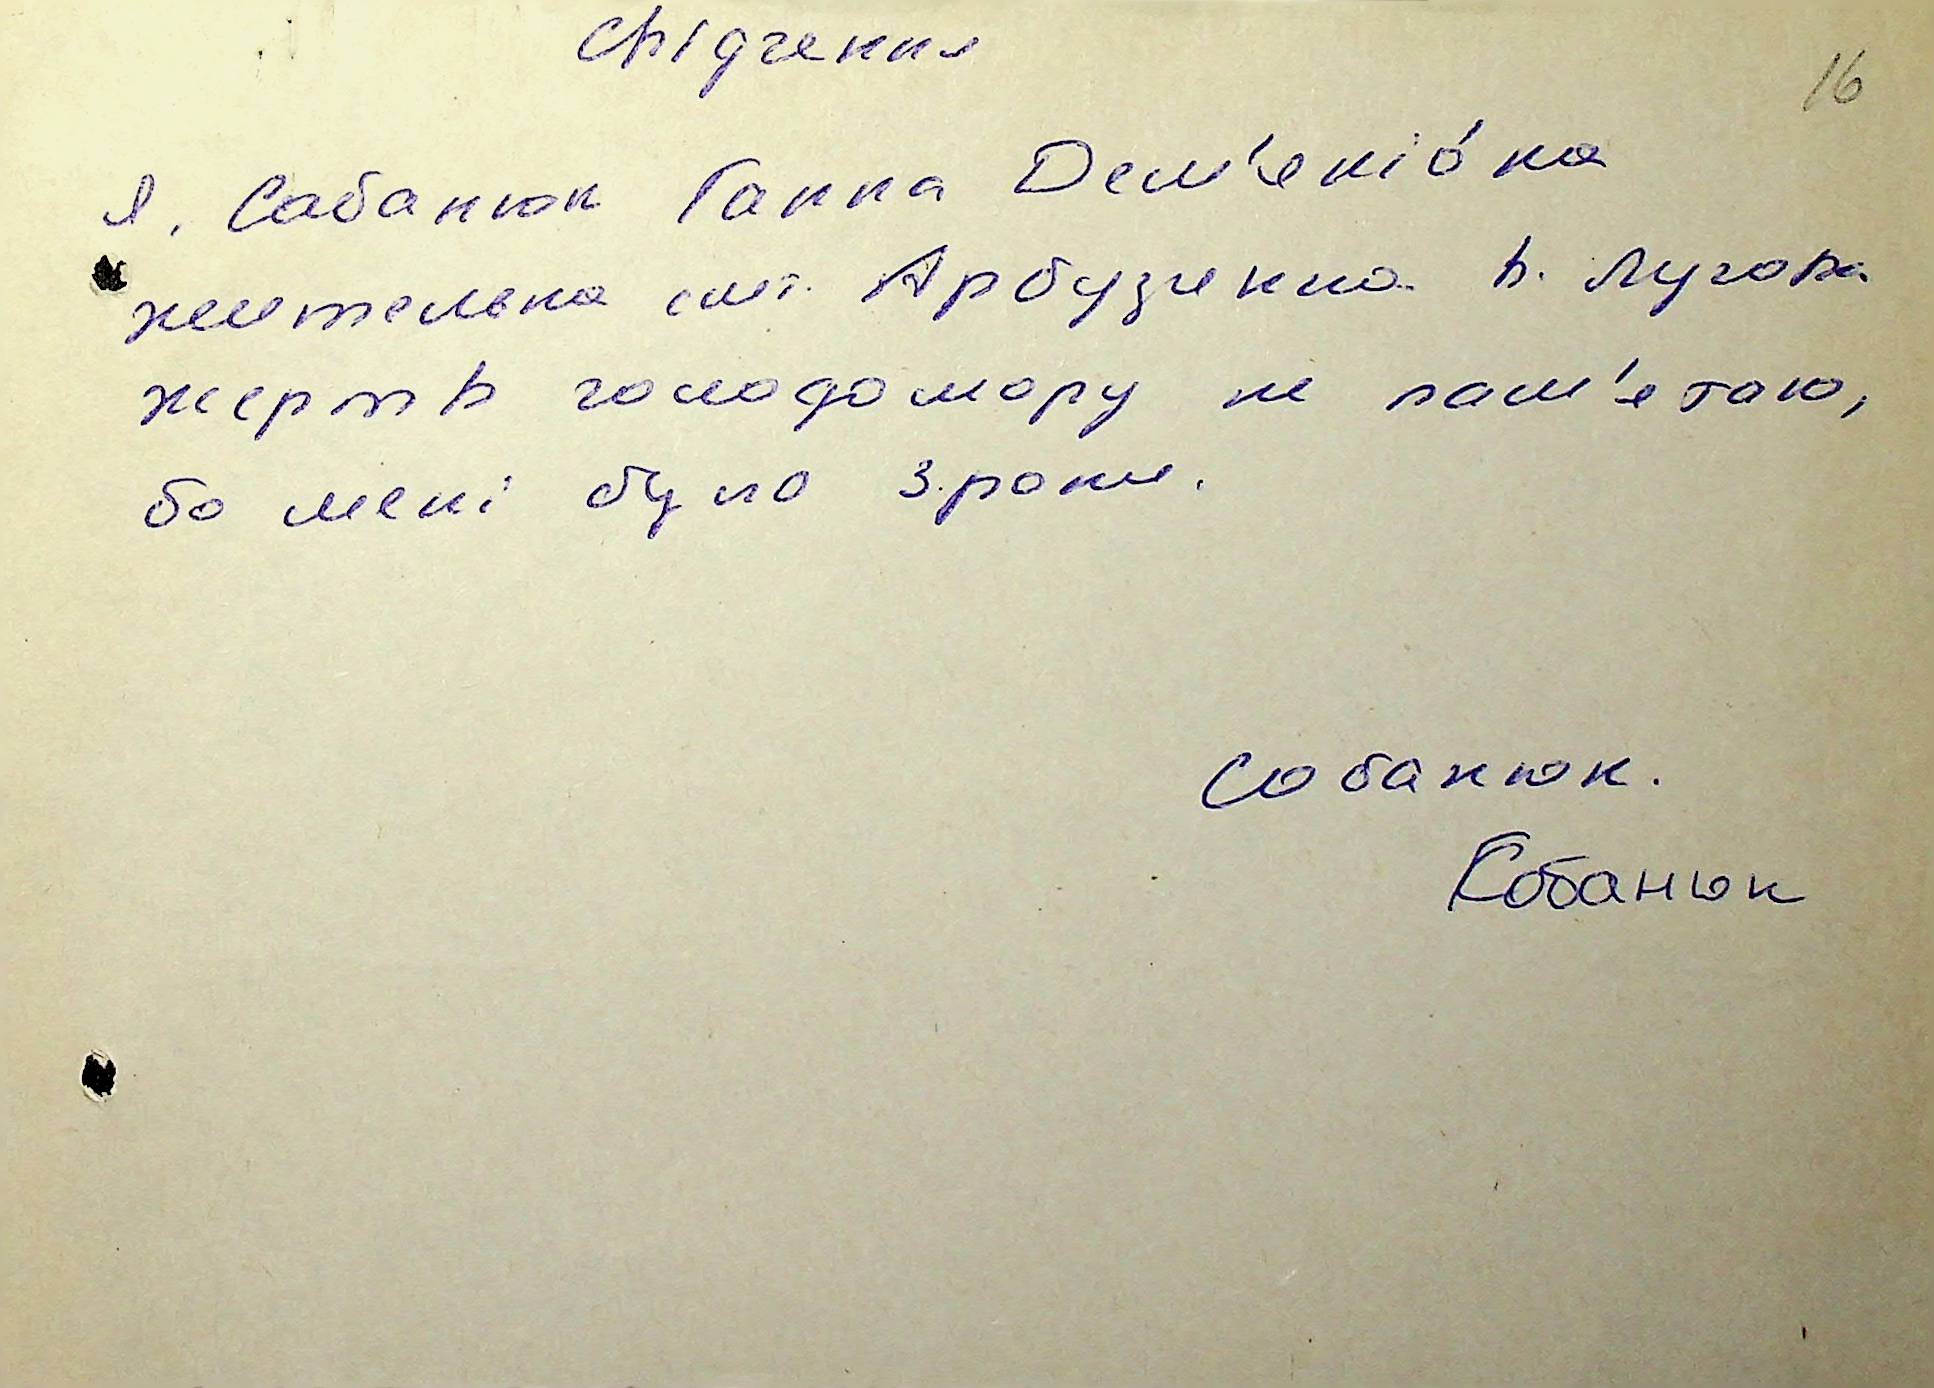 Свідчення
16
Я, Сабанюк Ганна Дем'янівна
жителька смт. Арбузинка в. Лугова
жертв голодомору не пам'ятаю,
бо мені було 3 роки.
Собанюк.
Собанюк